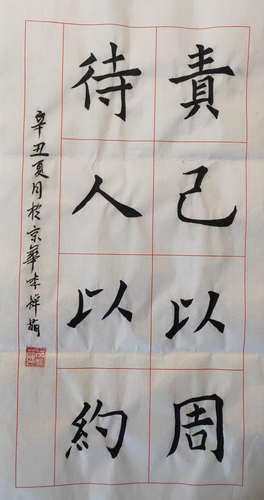 責己以周
待人以約
辛丑夏月於京華